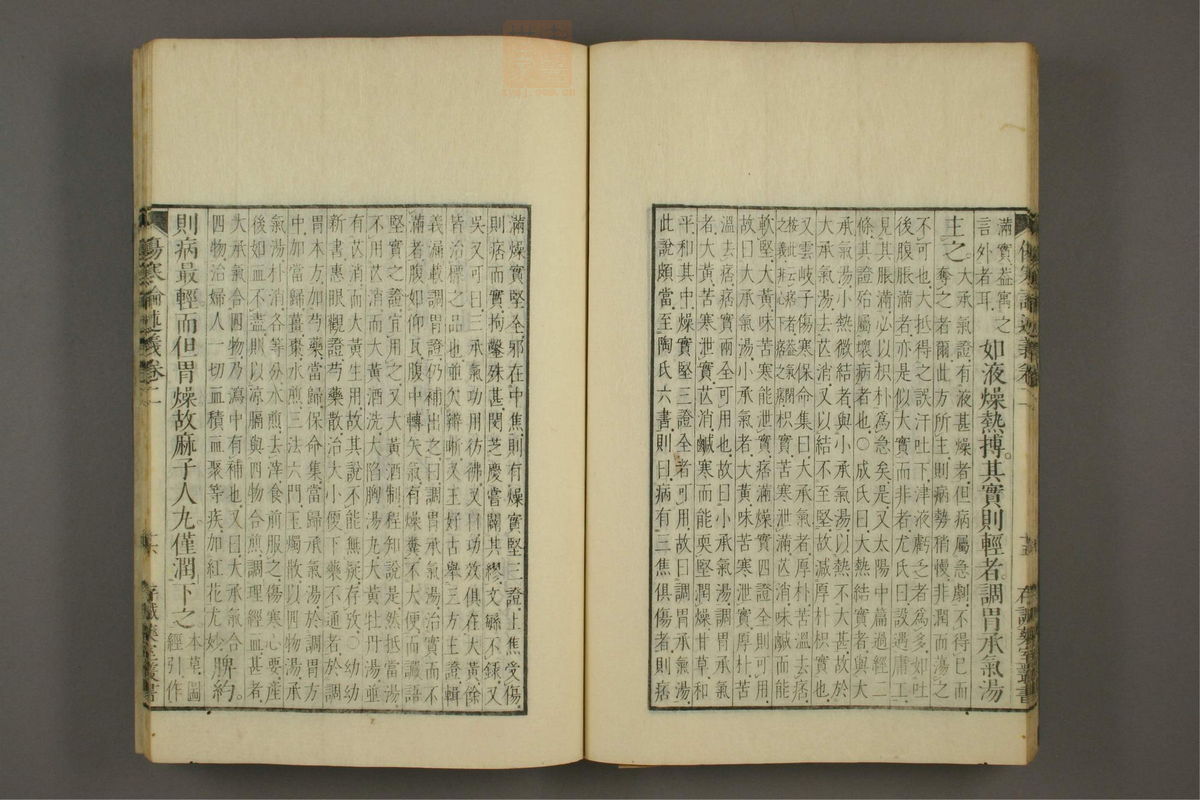 滿實益寓之
言外者耳如液燥熱搏其實則輕者調胃承氣湯
主之大承氣證有液甚燥者但病屬急劇不得已而
奪之者爾此方所主則病勢稍慢非潤而蕩之
不可也大抵得之誤汗吐下津液虧乏者爲多如吐
後腹脹滿者亦是似大實而非者尤氏曰設遇庸工
見其脹滿必以枳朴爲急矣是又太陽中篇過經二
條其證殆屬壞病者也○成氏曰大熱結實者與大
承氣湯小熱微結者與小承氣湯以熱不大甚故於
大承氣湯去芒消又以結不至堅故減厚朴枳實也
又雲岐子傷寒保命集曰大承氣者厚朴苦溫去痞
枳實苦寒泄滿芒消味鹹而能
軟堅大黃味苦寒能泄實痞滿燥實四證全則可用
故曰大承氣湯小承氣者大黃味苦寒泄實厚朴苦
溫去痞痞實兩全可用也故曰小承氣湯調胃承氣
者大黃苦寒泄實芒消鹹寒而能耎堅潤燥甘草和
平和其中燥實堅三證全者可用故曰調胃承氣湯
此說頗當至陶氏六書則曰病有三焦俱傷者則痞
滿燥實堅全邪在中焦則有燥實堅三證上焦受傷
則痞而實拘鑿殊甚閔芝慶嘗闢其繆文繇不錄又
吳又可曰三承氣功用彷彿又曰功效俱在大黃餘
皆治標之品也並欠辨晰又王好古舉三方主證輯
義漏載調胃證仍補出之曰調胃承氣湯治實而不
滿者腹如仰瓦腹中轉矢氣有燥糞不大便而讝語
堅實之證宜用之又大黃酒制程知說是然抵當湯
不用芒消而大黃酒洗大陷胸湯丸大黃牡丹湯並
有芒消而大黃生用故其說不能無疑存攷○幼幼
新書惠眼觀證芍藥散治大小便下藥不通者於調
胃本方加芍藥當歸保命集當歸承氣湯於調胃方
中加當歸薑棗水煎三法六門玉燭散以四物湯承
氣湯朴消各等分水煎去滓食前服之傷寒心要產
後如血不盡則以涼膈與四物合煎調理經血甚者
大承氣合四物乃瀉中有補也又曰大承氣合
四物治婦人一切血積血聚等疾加紅花尤妙脾約
則病最輕而但胃燥故麻子人丸僅潤下之本草圖
經引作
傷寒論述義卷二
存誠藥室叢書